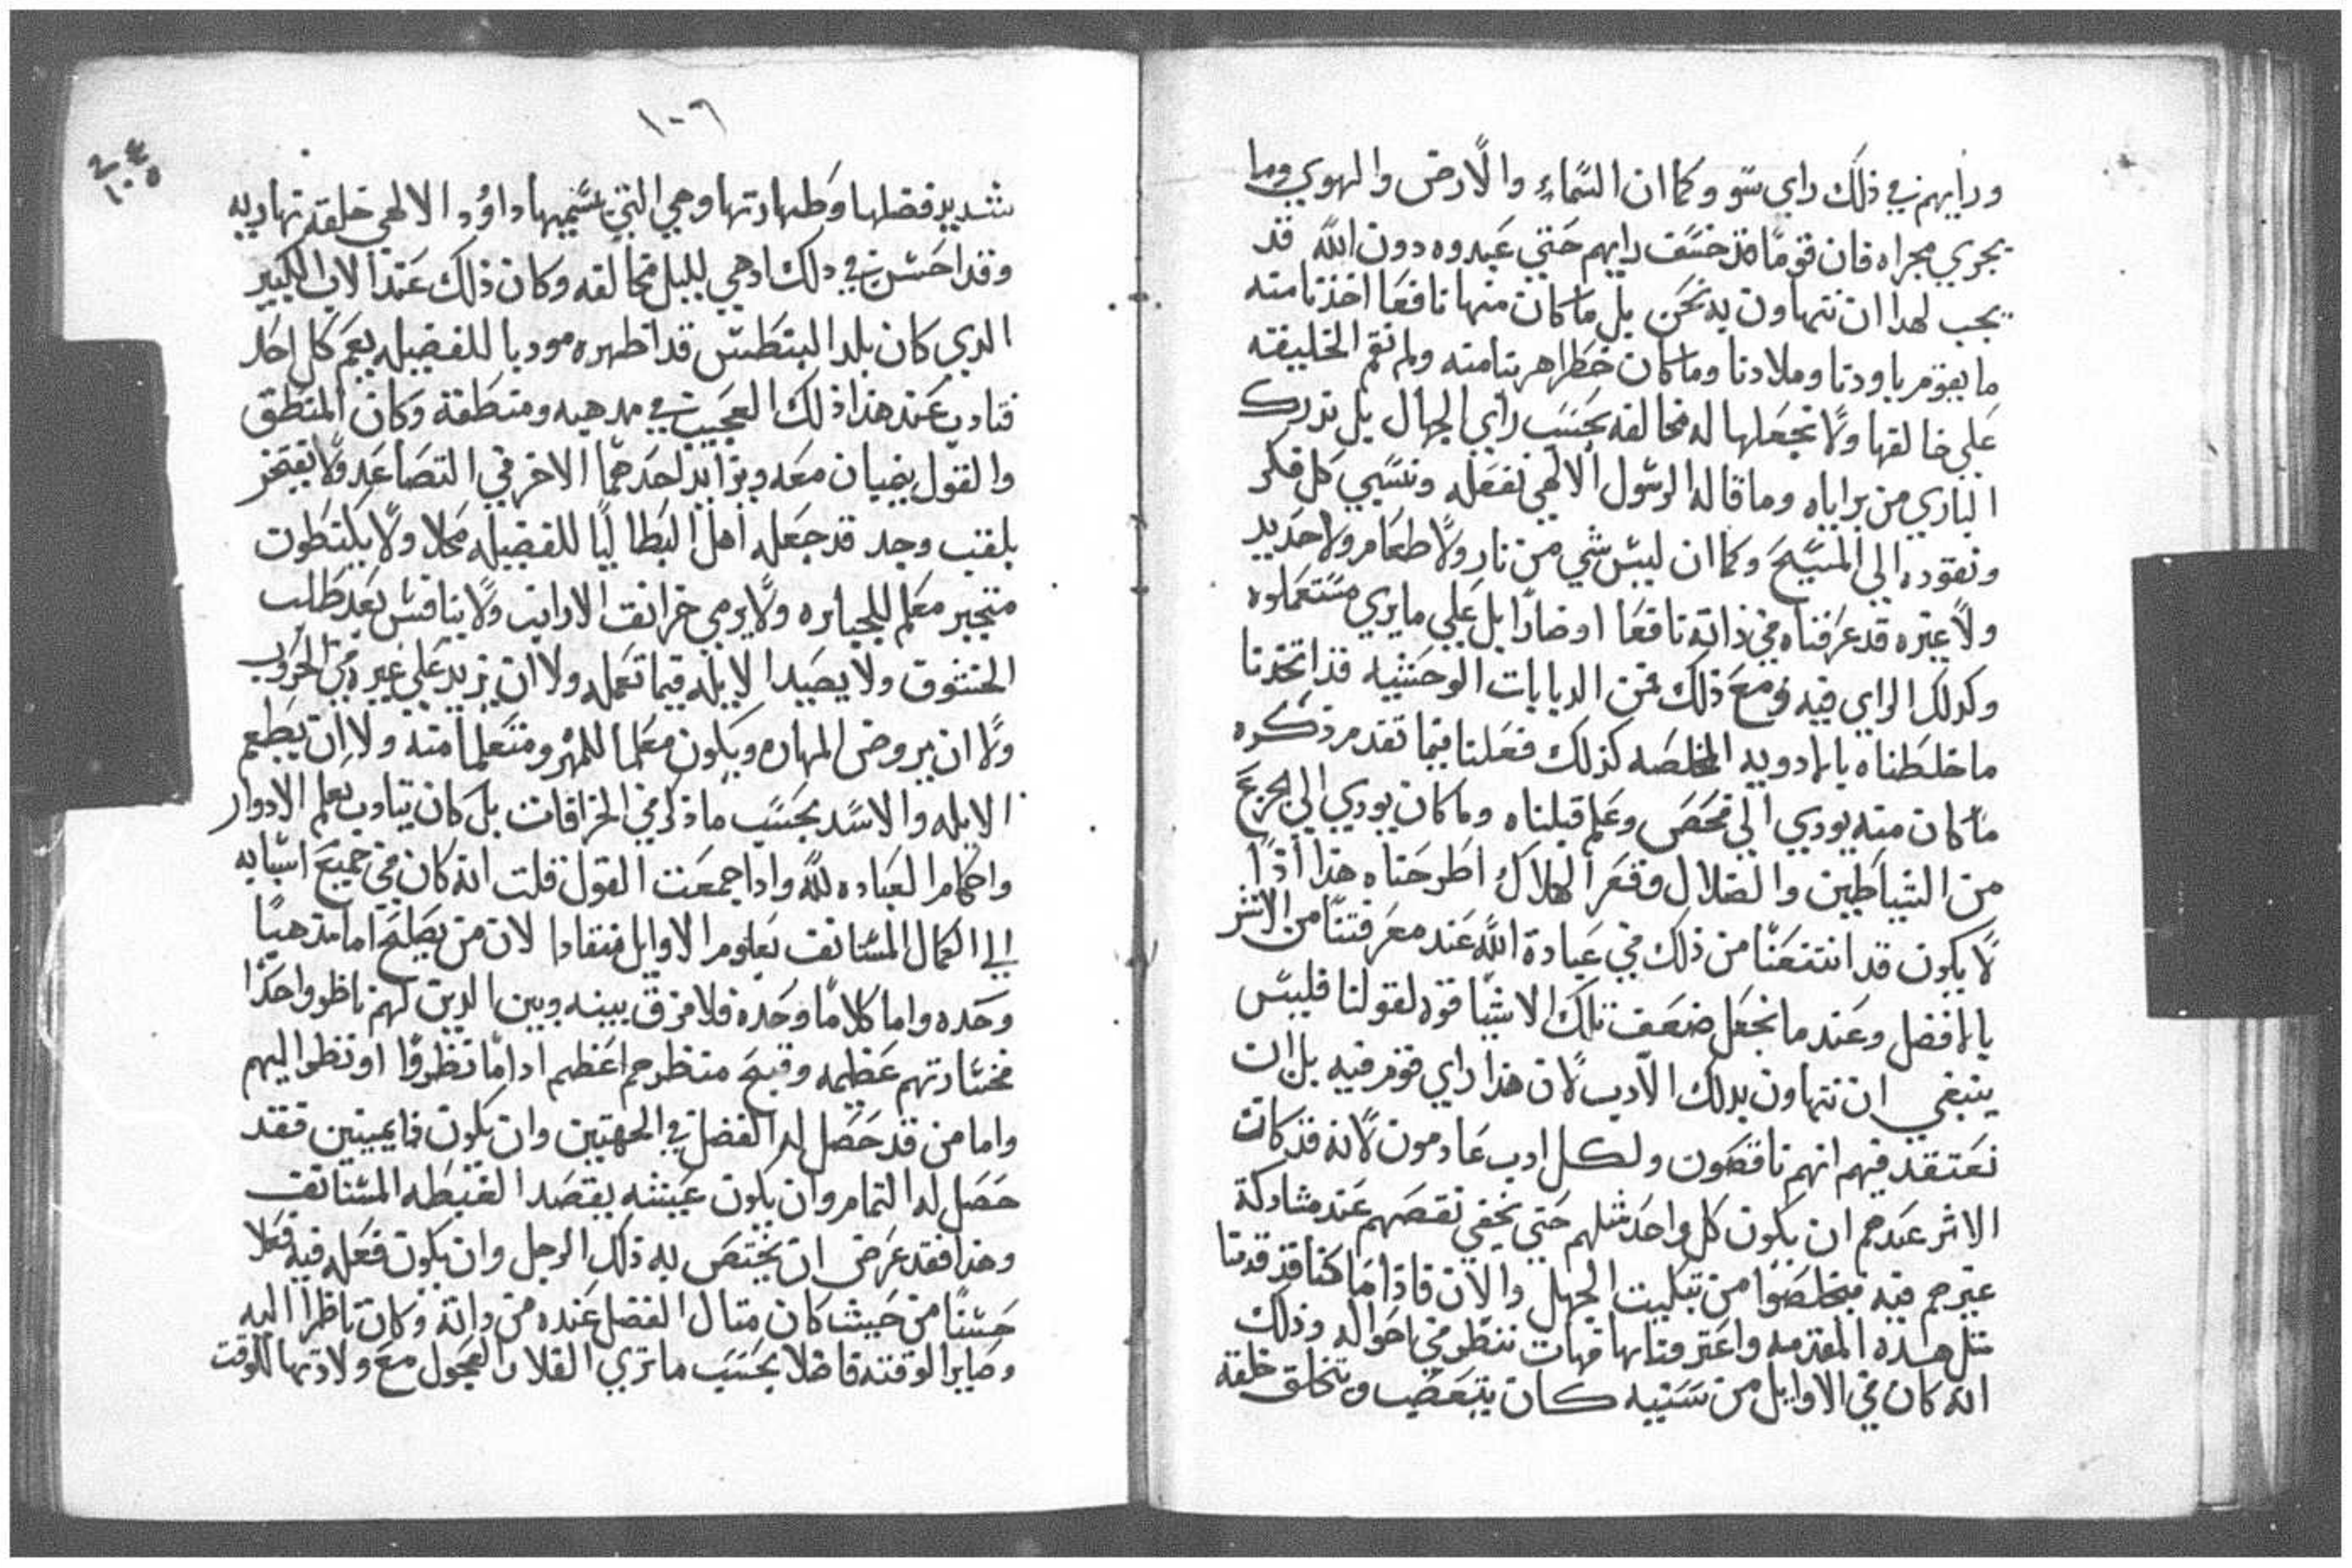 ورايهم في ذلك راي سو وكما ان السماء والارض والهوي وما
يجري مجراه فان قوما قد خسف رايهم حتي عبدوه دون الله قد
يجب لهدا ان نتهاون به نحن بل ما كان منها نافعا اخذنا منه
ما يقوم باودنا وملادنا وما كان خطرا هربنا منه ولم نقم الخليقه
علي خالقها ولا نجعلها له مخالفه بحسب راي الجهال بل ندرك
الباري من براياه وما قاله الرسول الالهي نفعله ونسبي كل فكر
ونقوده الي المسيح وكما ان ليس شي من نار ولا طعام ولا حديد
ولا غيره قد عرفناه في ذاته نافعا او ضارا بل علي ما يري مستعملوه
وكدلك الراي فيه ومع ذلك من الدبابات الوحشيه قد اتخذنا
ما خلطناه بالادويه المخلصه كذلك فعلنا فيما تقدم ذكره
ما كان منه يودي الي فحص وعلم قبلناه وما كان يودي الي الجزع
من الشياطين والضلال وقعر الهلاك اطرحناه هذا اذا
لا يكون قد انتفعنا من ذلك في عبادة الله عند معرفتنا من الاشر
بالافضل وعند ما نجعل ضعف تلك الاشيا قوه لقولنا فليس
ينبغي ان نتهاون بدلك الادب لان هذا راي قوم فيه بل ان
نعتقد فيهم انهم ناقصون ولكل ادب عادمون لانه قد كان
الاثر عندهم ان يكون كل واحد مثلهم حتي يخفي نقصهم عند مشاركة
غيرهم فيه فيخلصوا من تبكيت الجهل والان فاذا ما كنا قد قدمنا
مثل هده المقدمه واعترفنا بها فهات ننظر في احواله وذلك
انه كان في الاوايل من سنيه كان يتبعضب ويتخلق خلقة
١٠٦
شديد فضلها وطهارتها وهي التي يسميها داوود الالهي خلقه نهاريه
وقد احسن في دلك ادهي لليل مخالفه وكان ذلك عند الاب الكبير
الدي كان بلد البنطس قد اظهره موديا للفضيله يعم كل احد
فتادب عند هذا ذلك العجيب في مدهبه ومنطقه وكان المنطق
والقول ينميان معه ويزايد احدهما الاخر في التصاعد ولا يفتخر
بلقب وجد قد جعله اهل البطاليا للفضيله محلا ولا بكنطون
متجبر معلم للجبابره ولا يرمي خرانق الارانب ولا ينافس بعد طلب
الخشوف ولا يصيد الايله فيما تعمله ولا ان يزيد علي غيره في الحروب
ولا ان يروض المهاره ويكون معلما للمهر ومتعلما منه ولا ان يطعم
الايله والاسد بحسب ما ذكر في الخرافات بل كان يتادب بعلم الادوار
واحكام العباده لله واذا جمعت القول قلت انه كان في جميع اسبابه
الي الكمال المستانف بعلوم الاوايل منقادا لان من يصلح اما مذهبا
وحده واما كلاما وحده فلا فرق بينه وبين الدين لهم ناظر واحدا
فخسارتهم عظيمه وقبح منظرهم اعظم اداما نظروا او نظر اليهم
واما من قد حصل له الفضل في الجهتين وان يكون ذا يمينين فقد
حصل له التمام وان يكون عيشه يقصد الغبطه المستانف
وهذا فقد عرض ان يختص به ذلك الرجل وان يكون فعله فيه فعلا
حسنا من حيث كان مثال الفضل عنده من والده وكان ناظرا اليه
وصاير الوقته فاضلا بحسب ما تري الفلا والعجول مع ولادتها للوقت